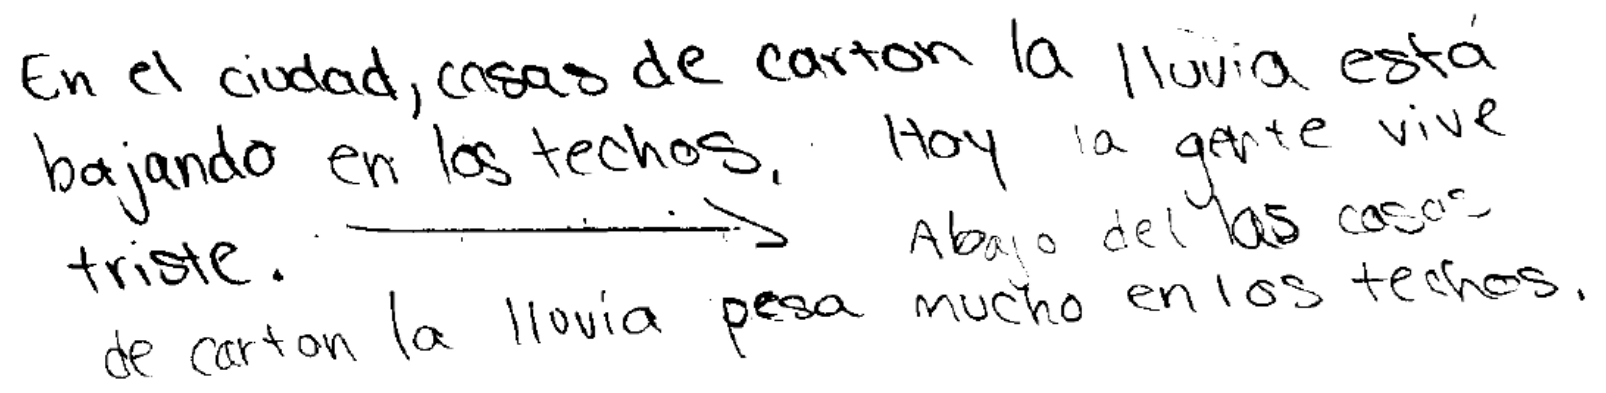 En el ciudad, casas de carton la lluvia está
bajando en los techos. Hoy la gente vive
triste. → Abajo del las casas
de carton la lluvia pesa mucho en los techos.